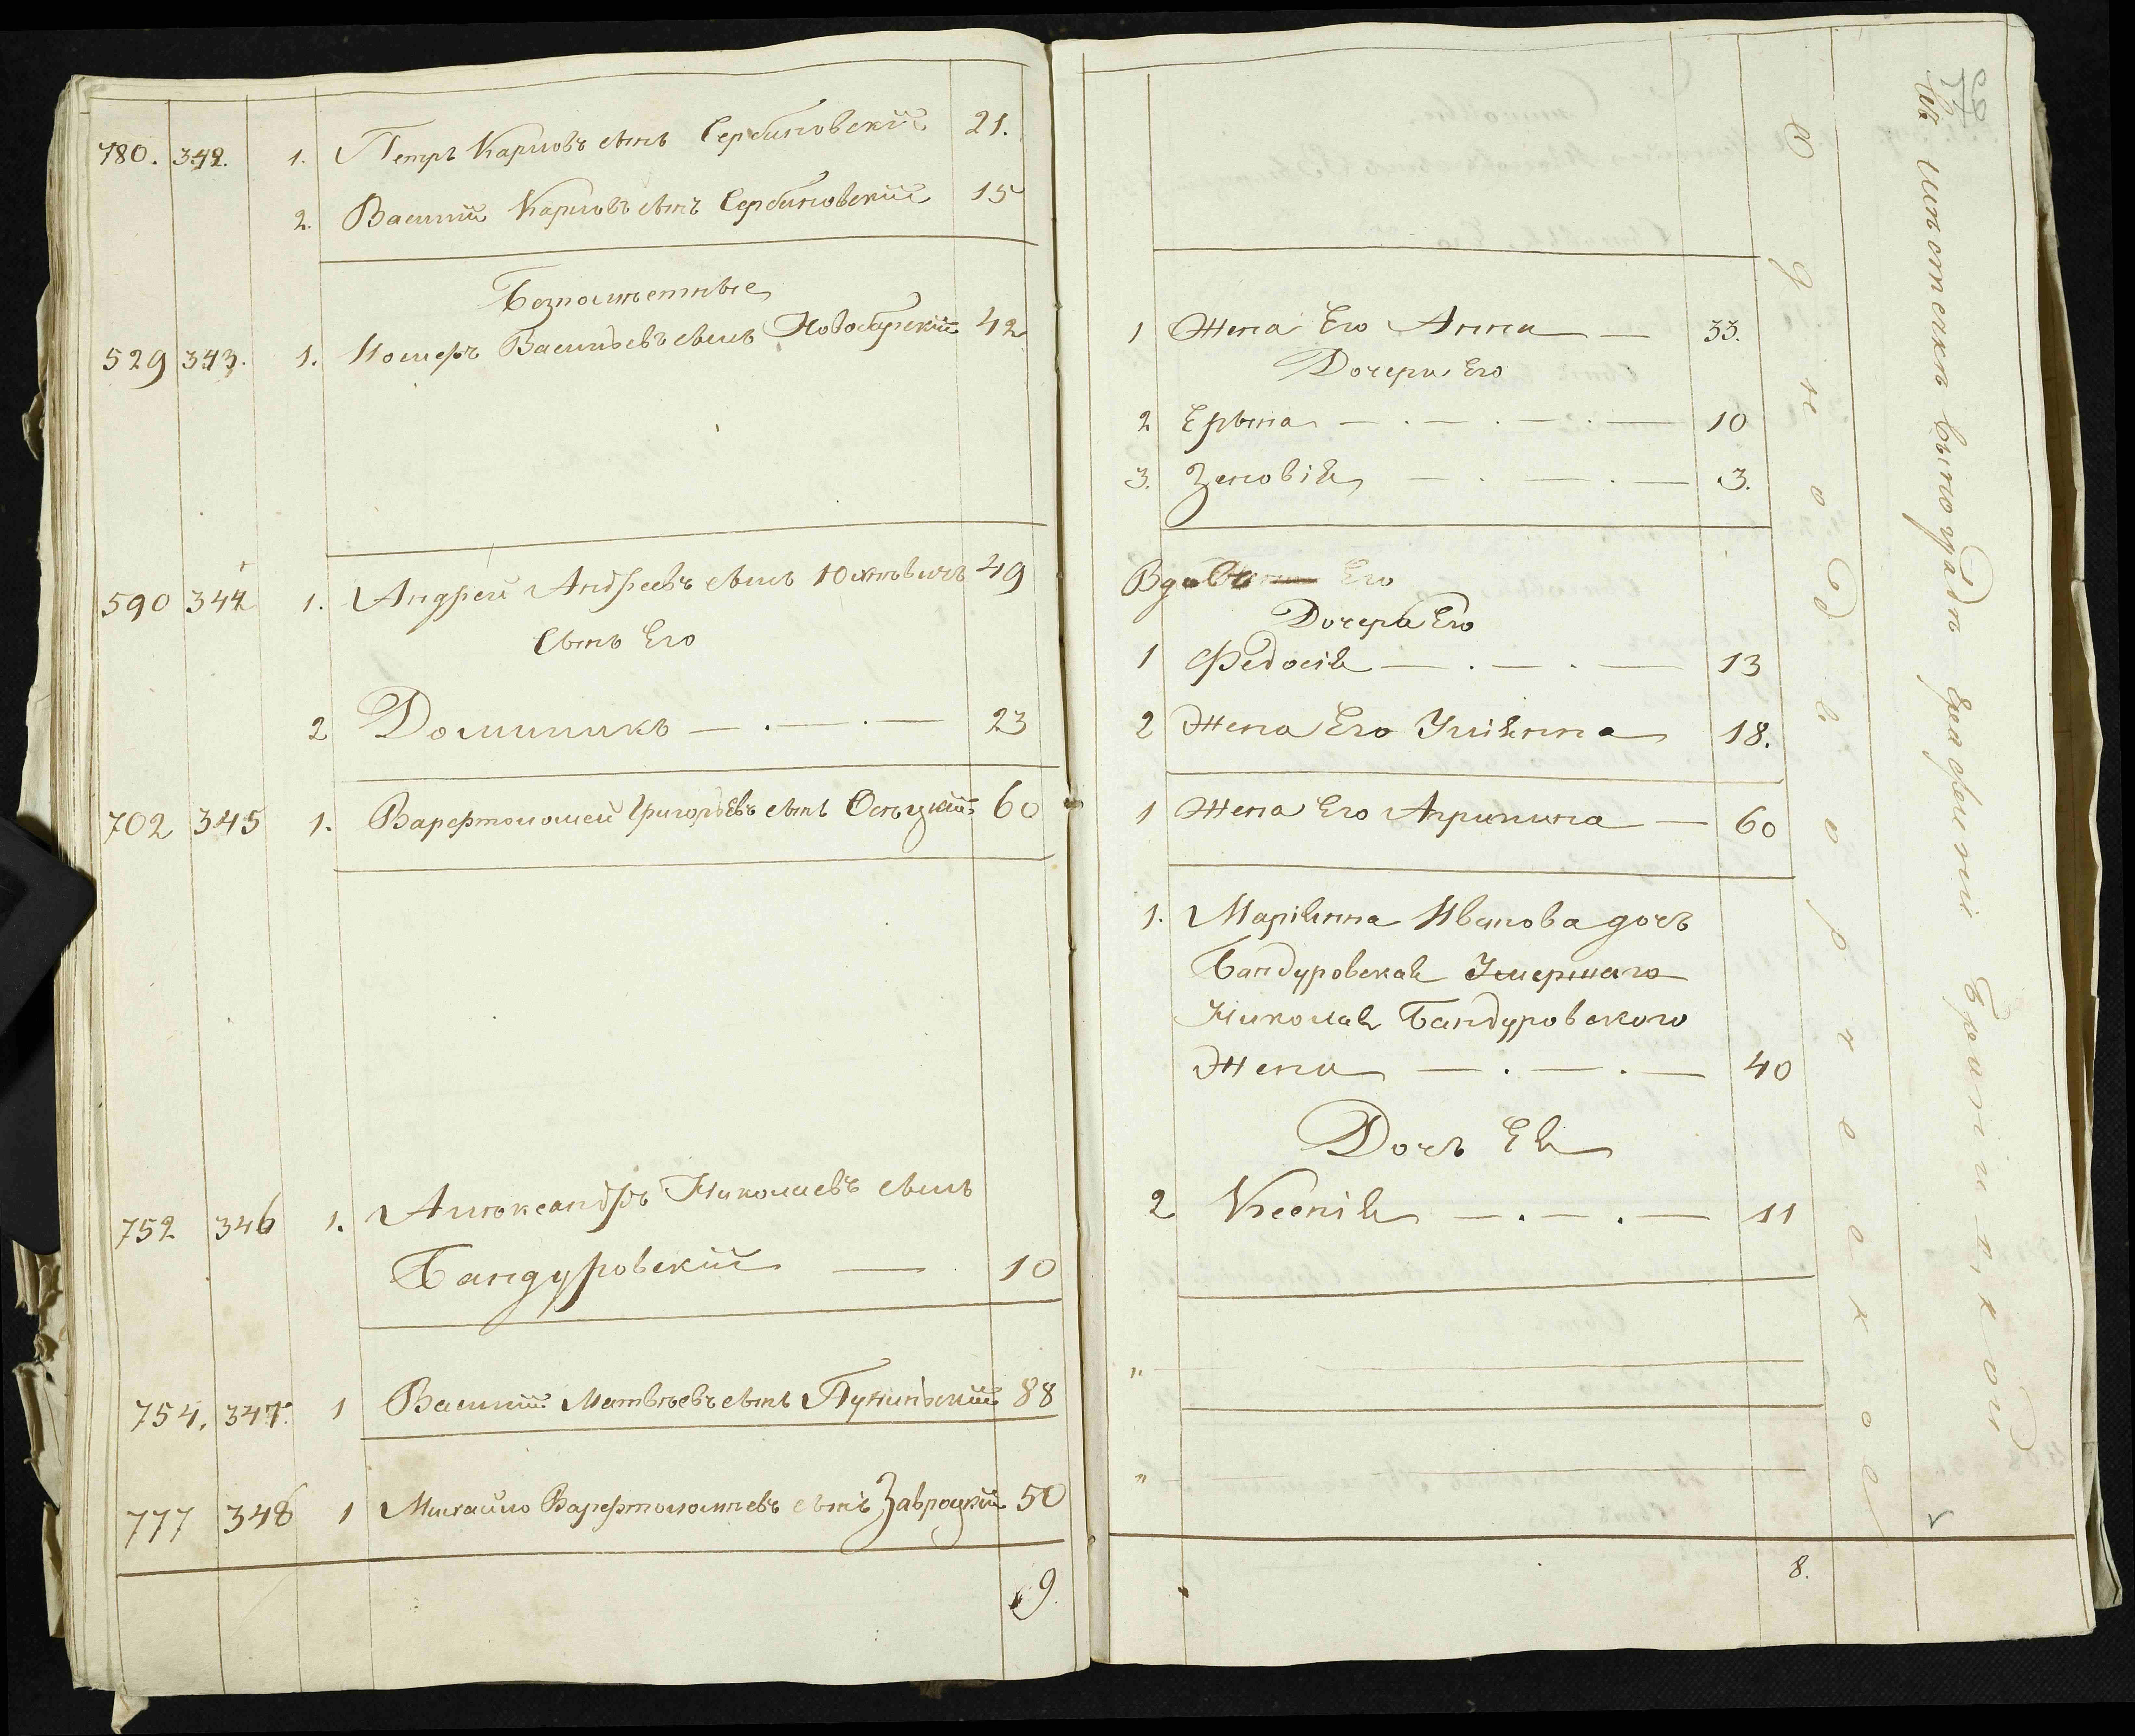 780. 342. 1. Петръ Карповъ сынъ Сербиновскій 21.
2. Василій Карповъ сынъ Сербиновскій 15
Безпоместные
529 343. 1. Іосифъ Васильевъ сынъ 42
590 344 1. Андрей Андреевъ сынъ Юхновичъ 49
Сынъ Его
2 Доминикъ — . — . — 23
702 345 1. Варфоломей Григорьевъ сынъ 60
752 346 1. Александръ Николаевъ сынъ
Бандуровскій — 10
754. 347. 1 Василій Матвѣевъ сынъ 88
777 348 1 Михайло Варфоломѣевъ сынъ Завроцкій 50
9.
1 Жена Его Анна — 33.
Дочери Его
2 Ерына — . — . — . — 10
3. Зеновія — . — . — 3.
Вдовъ Его
Дочера Его
1 Федосія — . — . — 13
2 Жена Его Уліянна 18.
1 Жена Его Агрипина — 60
1. Маріянна Иванова дочъ
Бандуровская Умершаго
Николая Бандуровского
Жена — . — . — 40
Дочъ Ея
2 Ксенія — . — . — 11
"
"
8.
О д н о д в о р ч е с к о е